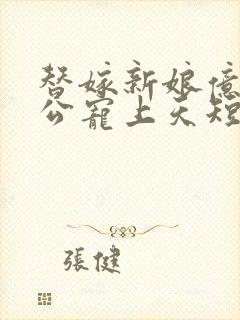 替嫁新娘億
公寵上天短
張健